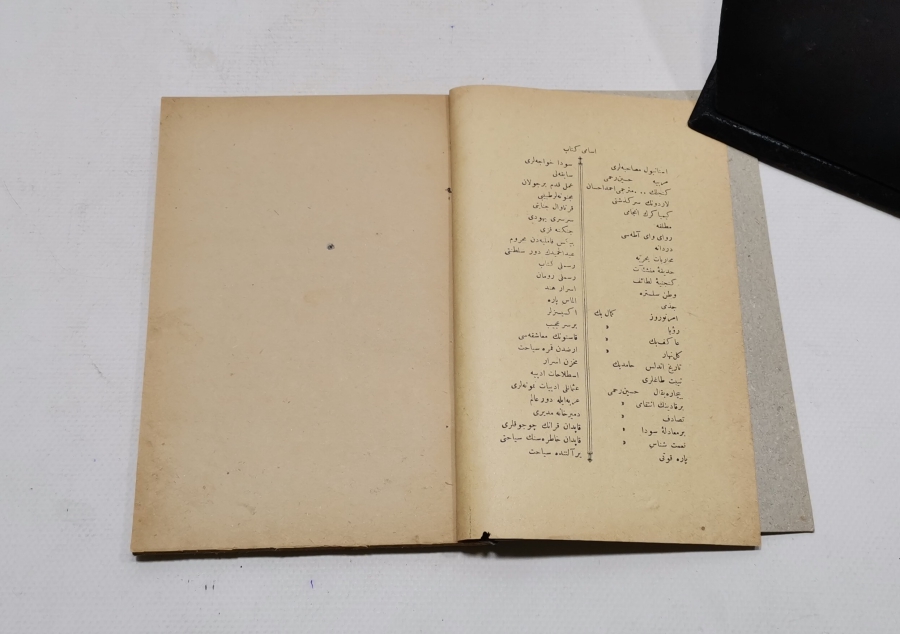 اسامی کتاب
استانبول مصاحبه‌لری
مربیه حسین رحمی
کنجلك ... مترجمی احمد احسان
لازدونك سرکذشتی
کیمیاکرك انجامی
مطلقه
روای وای آطه‌سی
دردانه
محاربات بحریه
حدیقهٔ منشئات
کنجینهٔ لطائف
وطن سلستره
جدی
امیر نوروز کمال بك
رؤیا »
عاکف بك »
کلنهار »
تاریخ اندلس حامد بك
تیبت طاغلری
بیچاره بقال حسین رحمی
بر قادینك انتقامی »
تصادف »
بر معادلهٔ سودا »
نعمت شناس »
پاره قوتی
سودا خواجه‌لری
سابقه‌لی
عملی فدیم برجولان
مجنونه‌لر طبیبی
قرناوال جنایتی
سرسری یهودی
جنکنه قزی
بیراس فامیلیه‌دن محروم
عبدالحمیدك دور سلطنتی
رسملی کتاب
رسملی رومان
اسرار هند
الماس پاره
اکسیزلر
بر سر عجیب
قاسونك معاشقه‌سی
ارضدن قمره سیاحت
مخزن اسرار
اصطلاحات ادبیه
عثمانلی ادبیات نمونه‌لری
عربه ایله دور عالم
دمیرخانه مدیری
قاپدان قرانك چوجوقلری
قاپدان خاطره‌سنك سیاحتی
بر آلتنده سیاحت